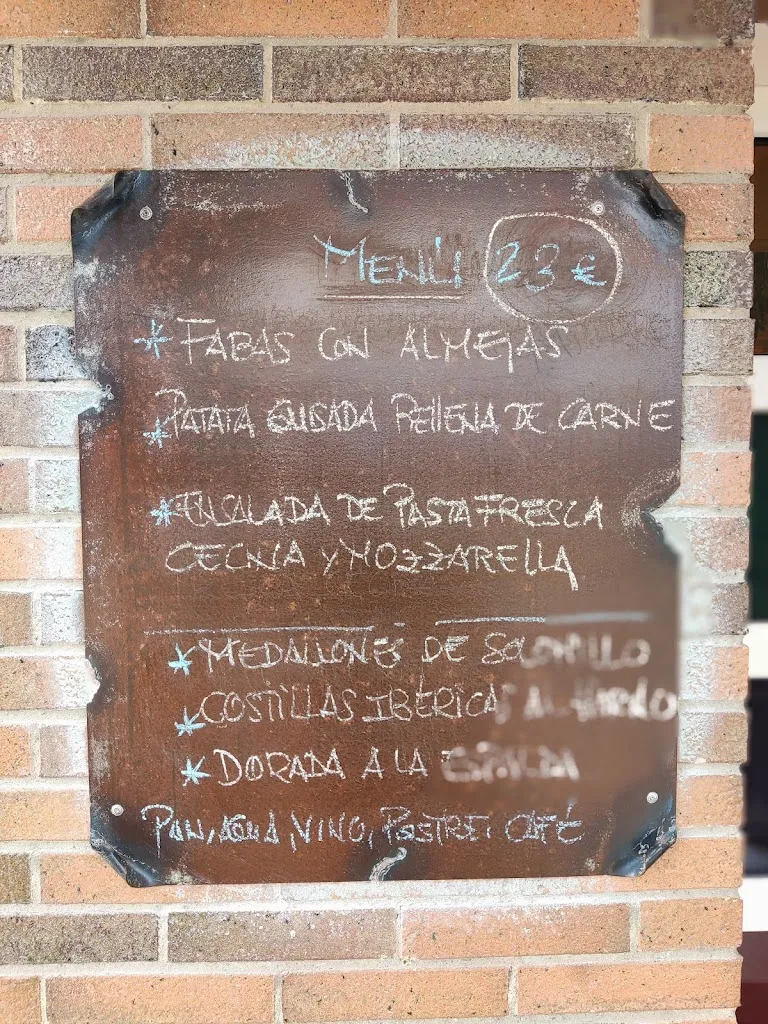 MENÚ 23 €
* FABAS CON ALMEJAS
* PATATA GUISADA RELLENA DE CARNE
* ENSALADA DE PASTA FRESCA
CECINA Y MOZZARELLA
* MEDALLONES DE SOLOMILLO
* COSTILLAS IBÉRICAS AL
* DORADA A LA ESPALDA
PAN, AGUA, VINO, POSTRE, CAFÉ